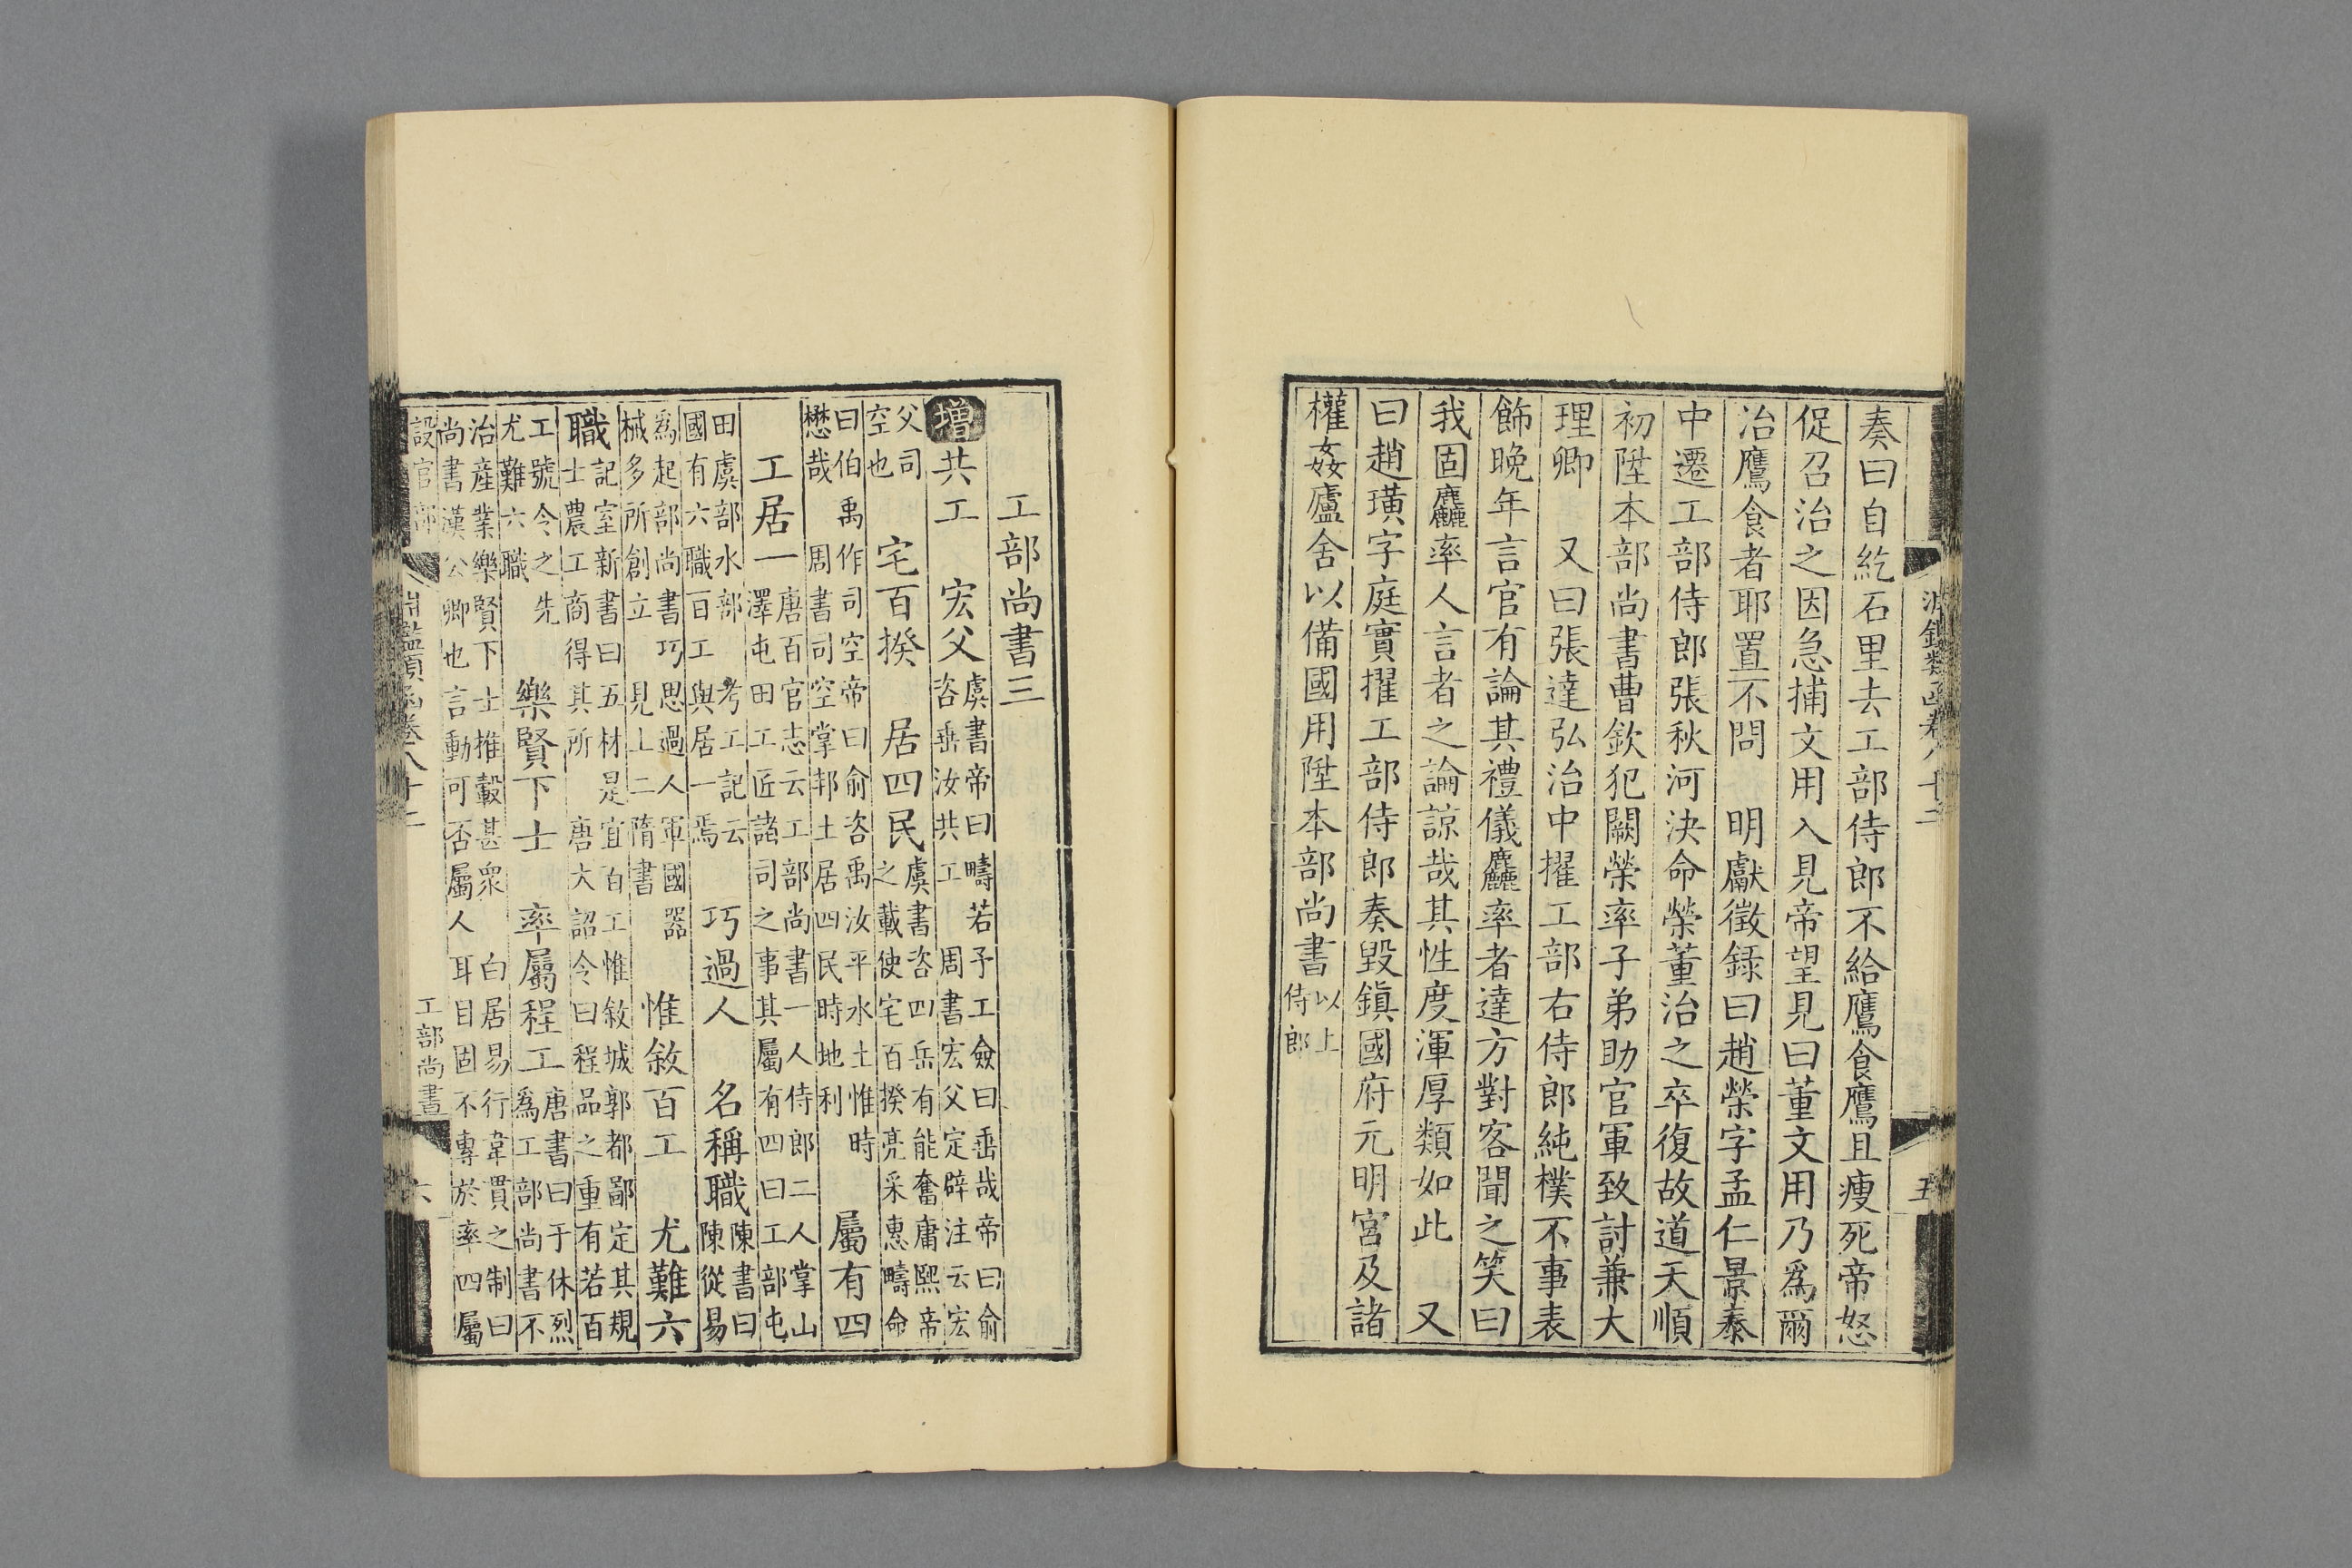 淵鑑類函卷八十二
五
奏曰自紇石里去工部侍郎不給鷹食鷹且瘦死帝怒
促召治之因急捕文用入見帝望見曰董文用乃爲爾
治鷹食者耶置不問 明獻徵錄曰趙榮字孟仁景泰
中遷工部侍郎張秋河決命榮董治之卒復故道天順
初陞本部尚書曹欽犯闕榮率子弟助官軍致討兼大
理卿 又曰張達弘治中擢工部右侍郎純樸不事表
飾晚年言官有論其禮儀麤率者達方對客聞之笑曰
我固麤率人言者之論諒哉其性度渾厚類如此 又
曰趙璜字庭實擢工部侍郎奏毀鎮國府元明宮及諸
權姦廬舍以備國用陞本部尚書以上侍郎
工部尚書三
增共工 宏父虞書帝曰疇若予工僉曰垂哉帝曰俞咨垂汝共工 周書宏父定辟注云宏
父司空也 宅百揆 居四民虞書咨四岳有能奮庸熙帝之載使宅百揆亮采惠疇命
曰伯禹作司空帝曰俞咨禹汝平水土惟時懋哉 周書司空掌邦土居四民時地利 屬有四
工居一唐百官志云工部尚書一人侍郎二人掌山澤屯田工匠諸司之事其屬有四曰工部屯
田虞部水部 考工記云國有六職百工與居一焉 巧過人 名稱職陳書曰陳從易
爲起部尚書巧思過人軍國器械多所創立 見上二隋書 惟敘百工 尤難六
職記室新書曰五材是宜百工惟敘城郭都鄙定其規士農工商得其所 唐大詔令曰程品之重有若百
工號令之先尤難六職 樂賢下士 率屬程工唐書曰于休烈爲工部尚書不
治產業樂賢下士推轂甚衆 白居易行韋貫之制曰尚書漢公卿也言動可否屬人耳目固不專於率四屬
設官部
淵鑑類函卷八十二
工部尚書
六